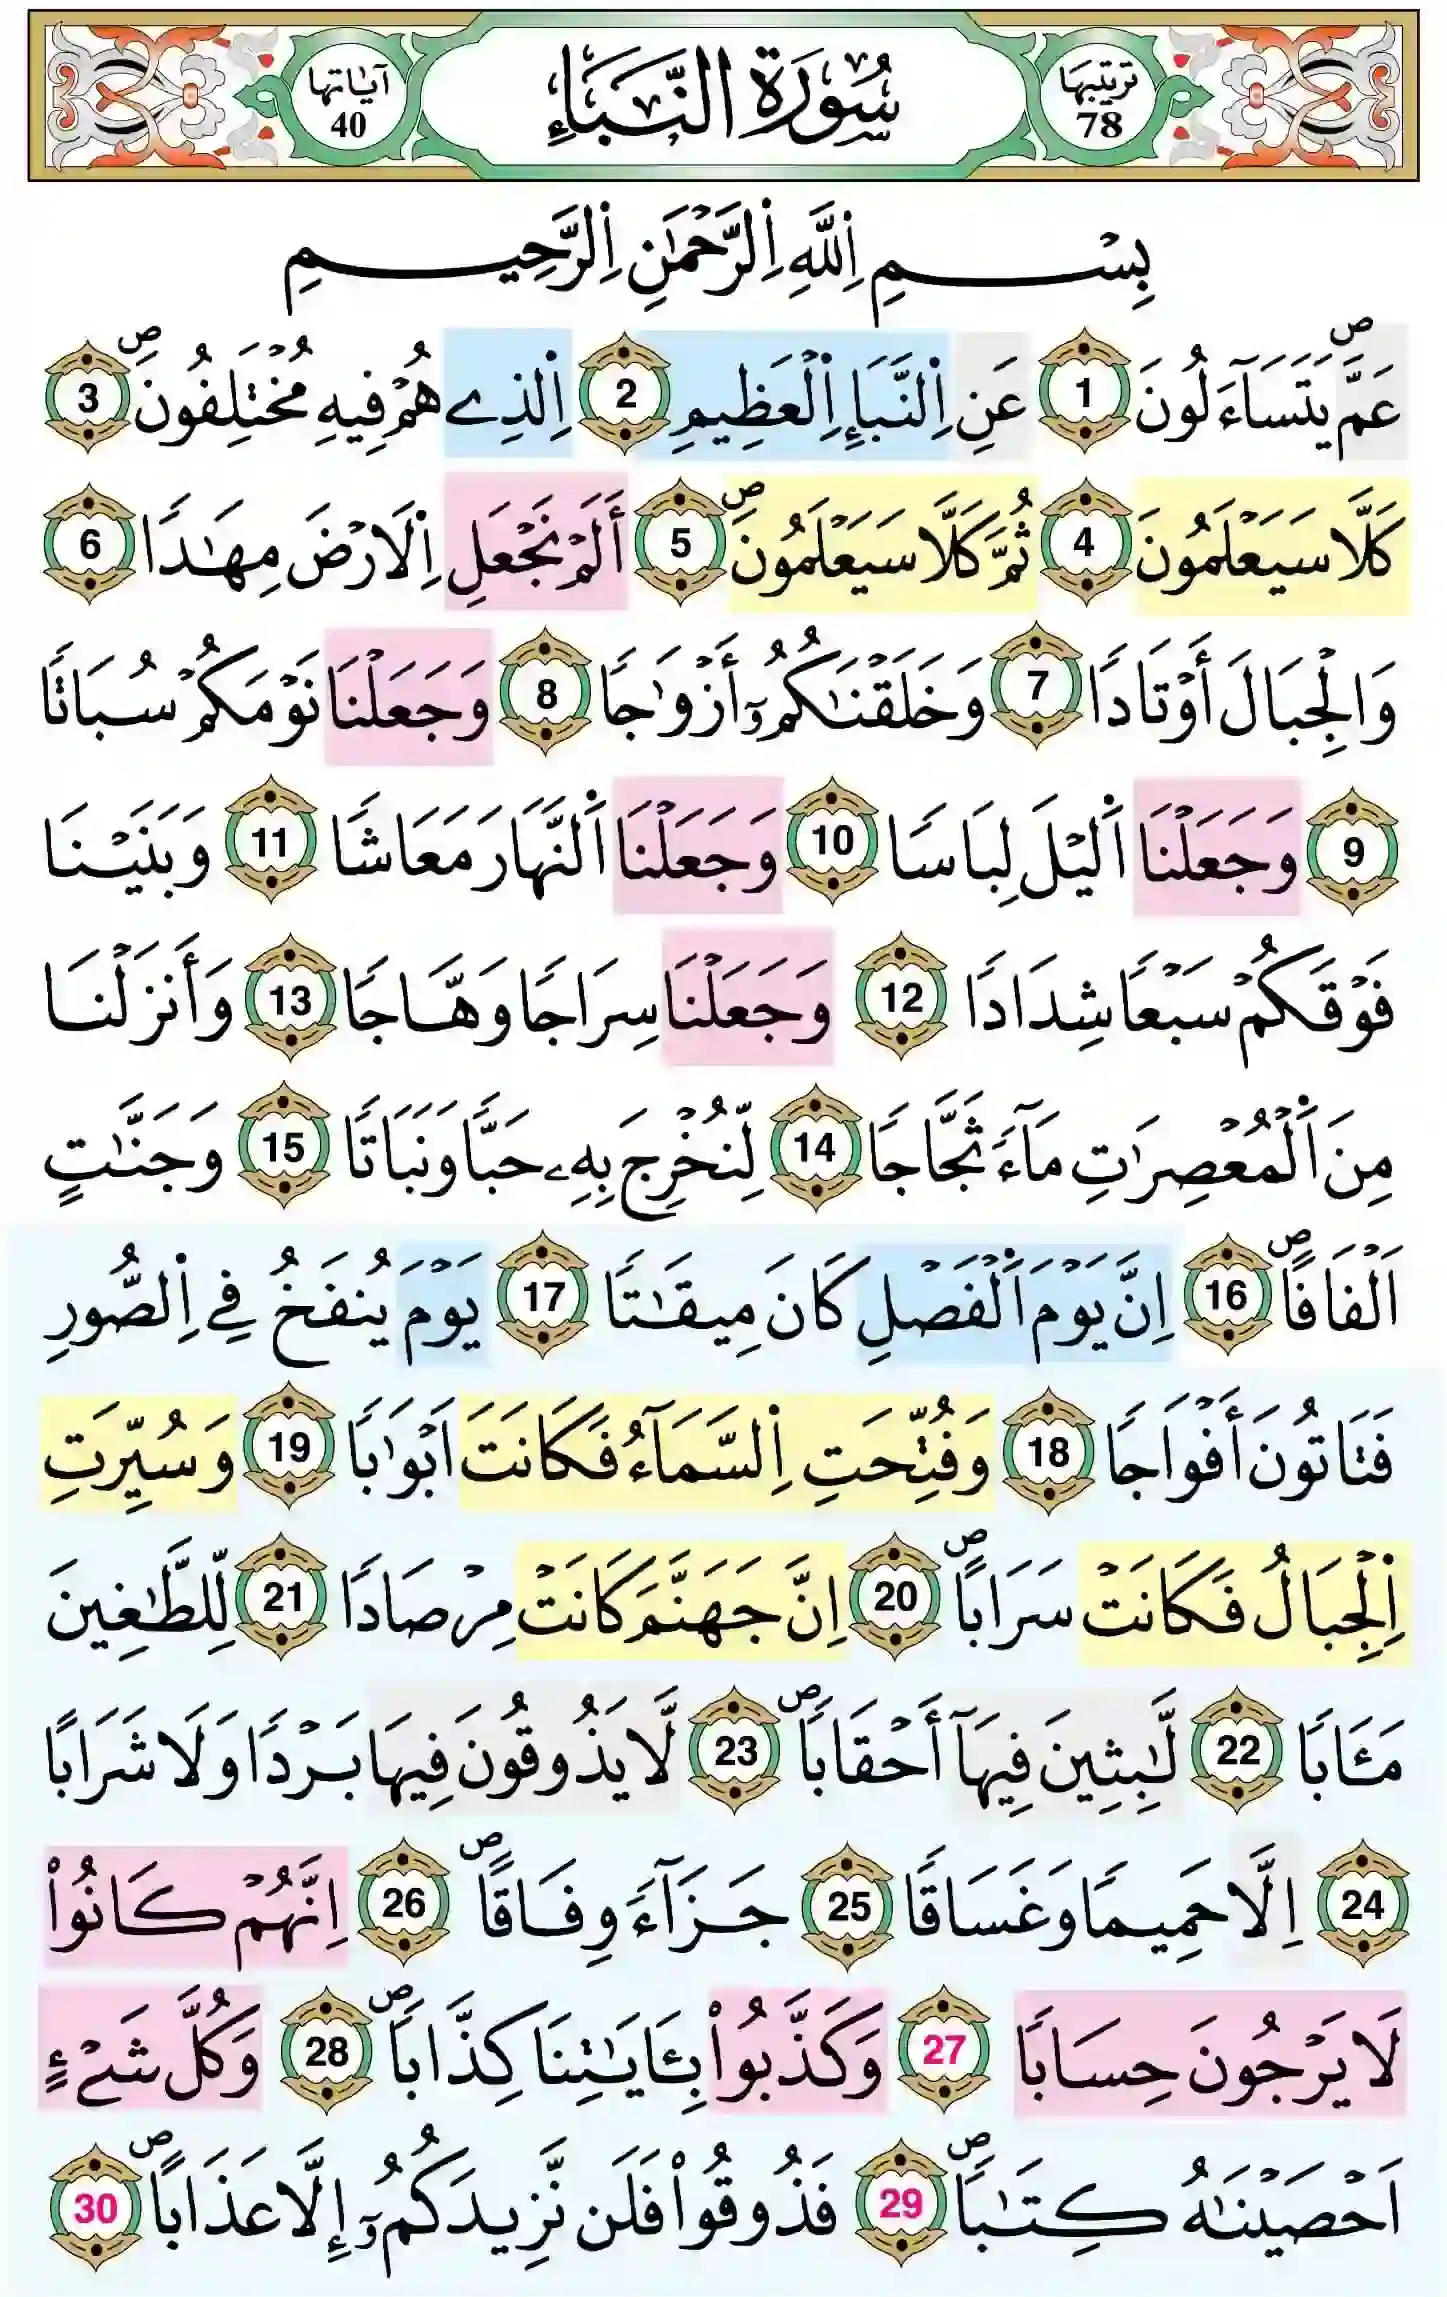 ترتيبها 78 سُورَةُ النَّبَإِ آياتها 40
بِسْمِ اِ۬للَّهِ اِ۬لرَّحْمَٰنِ اِ۬لرَّحِيمِ
عَمَّ يَتَسَآءَلُونَۖ 1 عَنِ اِ۬لنَّبَإِ اِ۬لْعَظِيمِ 2 اِ۬لذِے هُمْ فِيهِ مُخْتَلِفُونَۖ 3
كَلَّا سَيَعْلَمُونَ 4 ثُمَّ كَلَّا سَيَعْلَمُونَۖ 5 أَلَمْ نَجْعَلِ اِ۬لَارْضَ مِهَٰدٗا 6
وَالْجِبَالَ أَوْتَادٗا 7 وَخَلَقْنَٰكُمُۥٓ أَزْوَٰجٗا 8 وَجَعَلْنَا نَوْمَكُمْ سُبَاتٗا
9 وَجَعَلْنَا اَ۬ليْلَ لِبَاسٗا 10 وَجَعَلْنَا اَ۬لنَّهَارَ مَعَاشٗا 11 وَبَنَيْنَا
فَوْقَكُمْ سَبْعٗا شِدَادٗا 12 وَجَعَلْنَا سِرَاجٗا وَهَّاجٗا 13 وَأَنزَلْنَا
مِنَ اَ۬لْمُعْصِرَٰتِ مَآءٗ ثَجَّاجٗا 14 لِّنُخْرِجَ بِهِۦ حَبّٗا وَنَبَاتٗا 15 وَجَنَّٰتٍ
اَلْفَافٗاۖ 16 اِنَّ يَوْمَ اَ۬لْفَصْلِ كَانَ مِيقَٰتٗا 17 يَوْمَ يُنفَخُ فِے اِ۬لصُّورِ
فَتَاتُونَ أَفْوَاجٗا 18 وَفُتِّحَتِ اِ۬لسَّمَآءُ فَكَانَتَ اَبْوَٰبٗا 19 وَسُيِّرَتِ
اِ۬لْجِبَالُ فَكَانَتْ سَرَاباًۖ 20 اِنَّ جَهَنَّمَ كَانَتْ مِرْصَادٗا 21 لِّلطَّٰغِينَ
مَـَٔابٗا 22 لَّٰبِثِينَ فِيهَآ أَحْقَابٗاۖ 23 لَّا يَذُوقُونَ فِيهَا بَرْدٗا وَلَا شَرَاباً
24 اِلَّا حَمِيمٗا وَغَسَاقٗا 25 جَزَآءٗ وِفَاقاًۖ 26 اِنَّهُمْ كَانُواْ
لَا يَرْجُونَ حِسَابٗا 27 وَكَذَّبُواْ بِـَٔايَٰتِنَا كِذَّابٗاۖ 28 وَكُلَّ شَےْءٍ
اَحْصَيْنَٰهُ كِتَٰبٗاۖ 29 فَذُوقُواْ فَلَن نَّزِيدَكُمُۥٓ إِلَّا عَذَاباًۖ 30